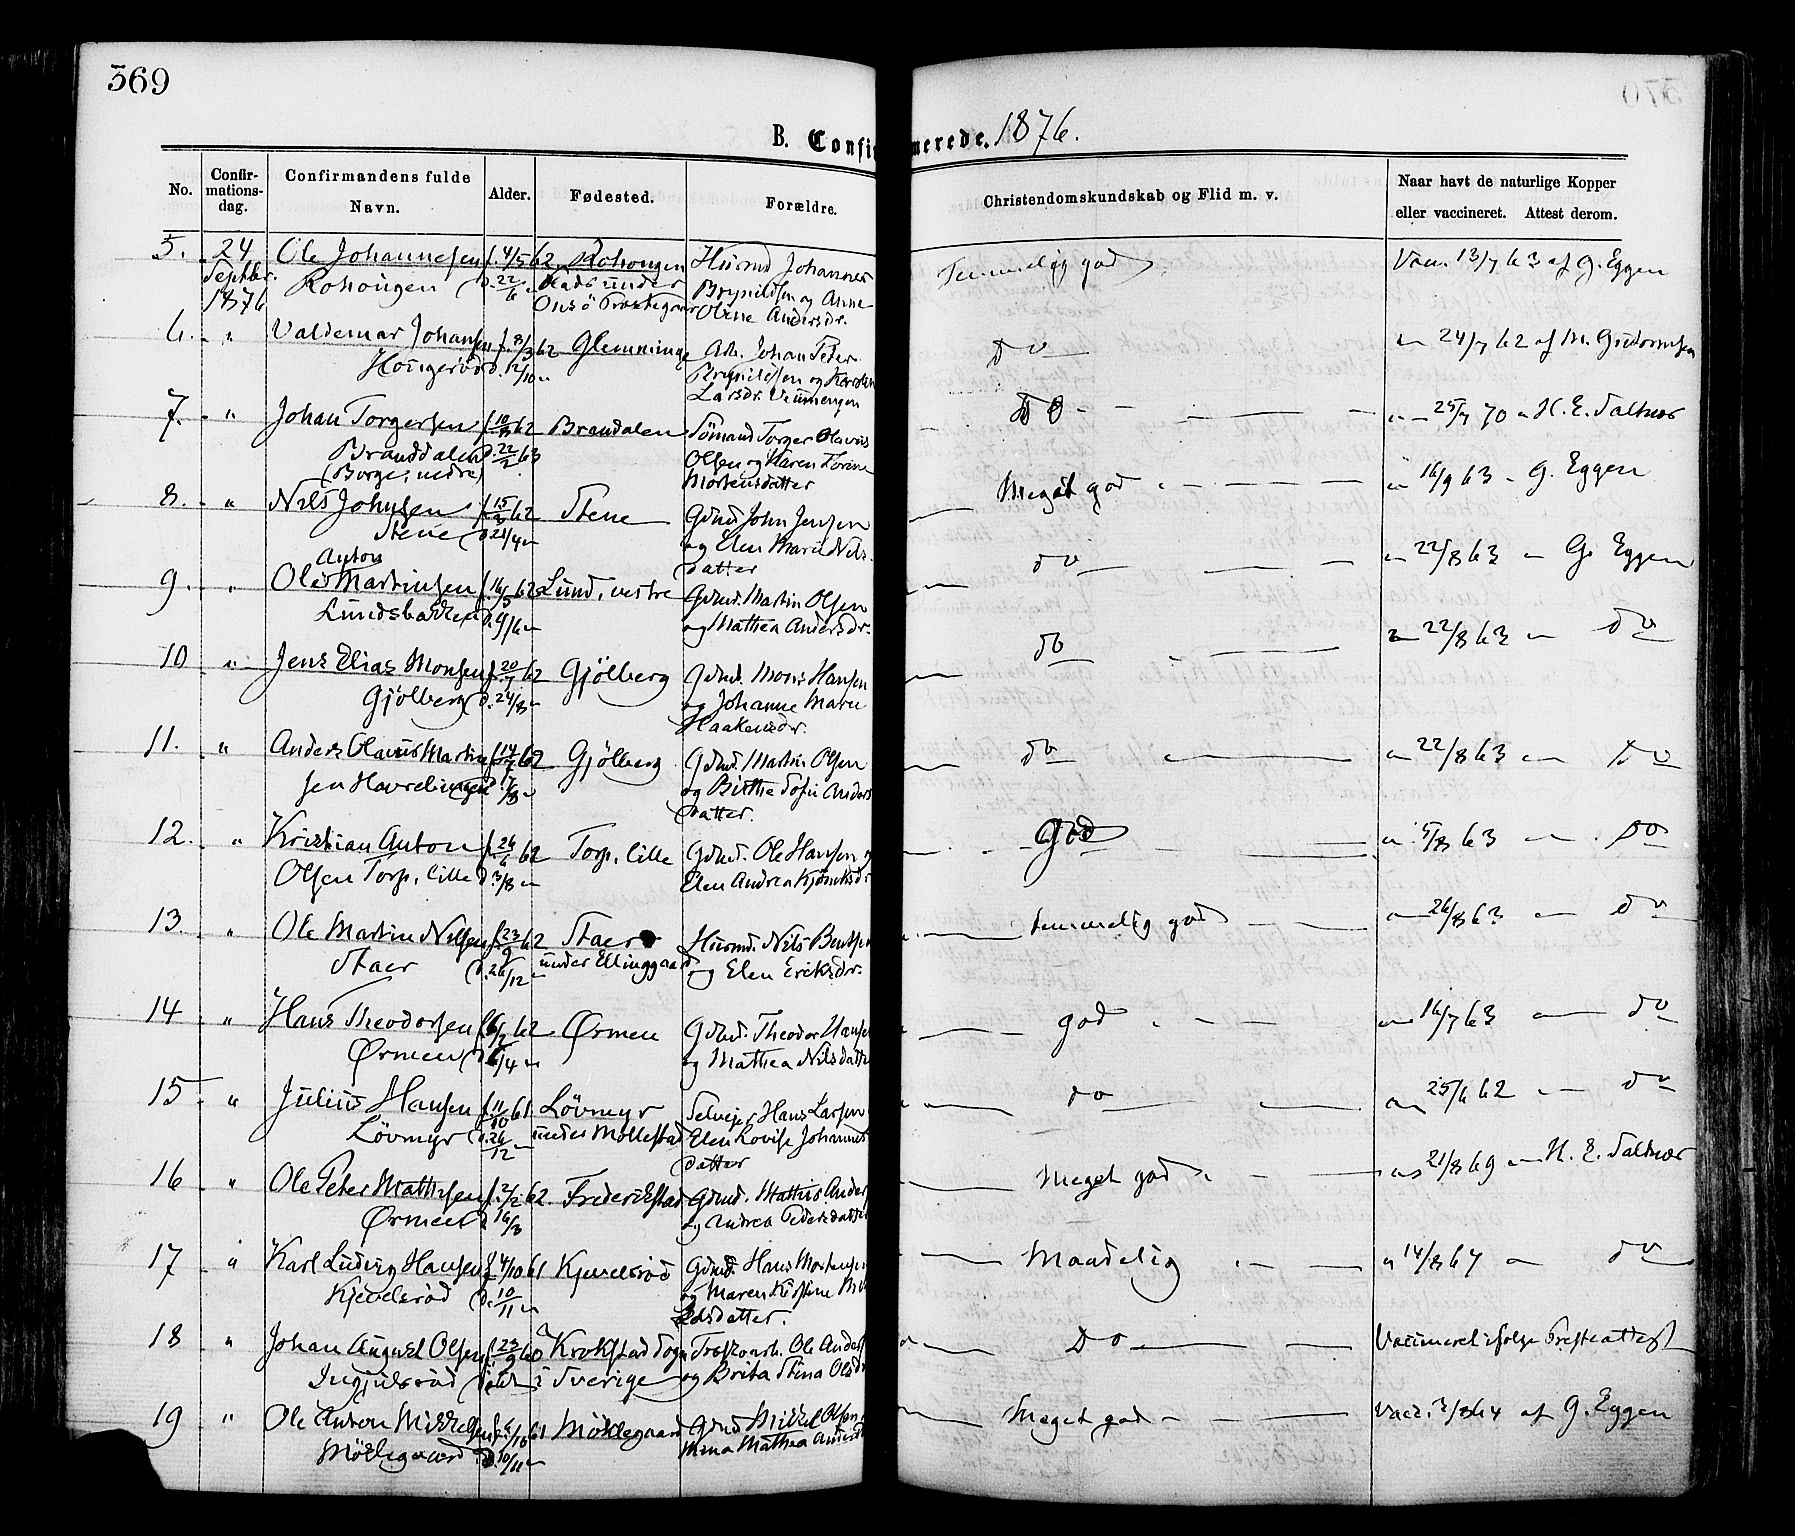 369
B. Confir
merede. 1876.
No.
Confir-
mations-
dag.
Confirmandens fulde
Navn.
Alder.
Fødested.
Forældre.
Christendomskundskab og Flid m. v.
Naar havt de naturlige Kopper
eller vaccineret. Attest derom.
5. 24 Ole Johannesen f. 4/5 62 Husmd Johannes Temmelig god Vacc. 13/7 63 af G. Eggen
Septbr. d. 22/6 Plads under Brynildsen og Anne
1876 Onsö Præstegaard Oline Andersdr.
6. " Valdemar Johansen f. 8/3 62 Glemminge Arb. Johan Peter do " 24/7 62 af M.
d. 12/10 " Brynildsen og
Larsdr.
7. " Johan Torgersen f. 62 Brandalen Sömand Torger Olavus do " 25/7 70 " H. E. Saltnes
Branddalen d. 22/2 63 Olsen og Karen
(Borge, nedre) Mortensdatter
8. " Nils Johnsen f. 15/3 62 Stene Gdmd John Jensen Meget god " 16/9 63 " G. Eggen
Stene d. 21/4 " og Elen Marie Nils-
datter
Anton
9. " Ole Martinsen f. 16/5 62 Lund, vestre Gdmd. Martin Olsen do " 22/8 63 " G. Eggen
Lundsbakken d. 9/6 " og Mathea Andersdr.
10 " Jens Elias Monsen f. 20/7 62 Gjölberg Gdmd. Mons Hansen do " 22/8 63 " do
Gjölberg d. 24/8 " og Johanne Marie
Haakensdr.
11. " Anders Olavus Martin f. 14/7 62 Gjölberg Gdmd. Martin Olsen do " 22/8 63 " do
sen d. 17/8 " og Birthe Sofie Anders
datter.
12. " Kristian Anton f. 26/6 62 Torp, lille Gdmd. Ole Hansen og God " 5/8 63 " do
Olsen Torp, lille d. 3/8 " Elen Andrea
13. " Ole Martin Nilsen f. 23/9 62 Staer Husmd. Nils Bentsen temmelig god " 26/8 63 " do
Staer d. 26/12 " under Ellinggaard og Elen Eriksdr.
14 " Hans Theodorsen 62 Ørmen Gdmd. Theodor Hansen god " 16/7 63 " do
Ørmen d. 6/4 " og Mathea Nilsdatter
15 " Julius Hansen f. 11/10 61 Lövmyr Selveier Hans Larsen do " 25/6 62 " do
Lövmyr d. 26/12 " under Mollestad Elen Lovise Johannes
datter
16 " Ole Peter Mathisen f. 2/2 62. Frederikstad Gdmd. Mathis Anders Meget god " 21/8 69 " H. E. Saltnes
Ørmen d. 16/3 og Andrea Pedersdatter
17 " Karl Ludvig Hansen f. 4/10 61 Kjevelsröd Gdmd. Hans Mortensen Maadelig " 14/8 67 " do
Kjevelsröd d. 10/11 " og Maren Kirstine
elsdatter.
18 " Johan August Olsen f. 23/9 60 Krokstad Sogn Ole Anders do Vaccineret ifölge Presteattest
Ingjulsröd i Sverige og Brita Stina Olsdr
19 " Ole Anton Mikkelsen f. 4/10 61 Mörkegaard Gdmd Mikkel Olsen Meget god Vacc. 3/8 64 af G. Eggen
Mörkegaard d. 10/11 " Mina Mathea Anders